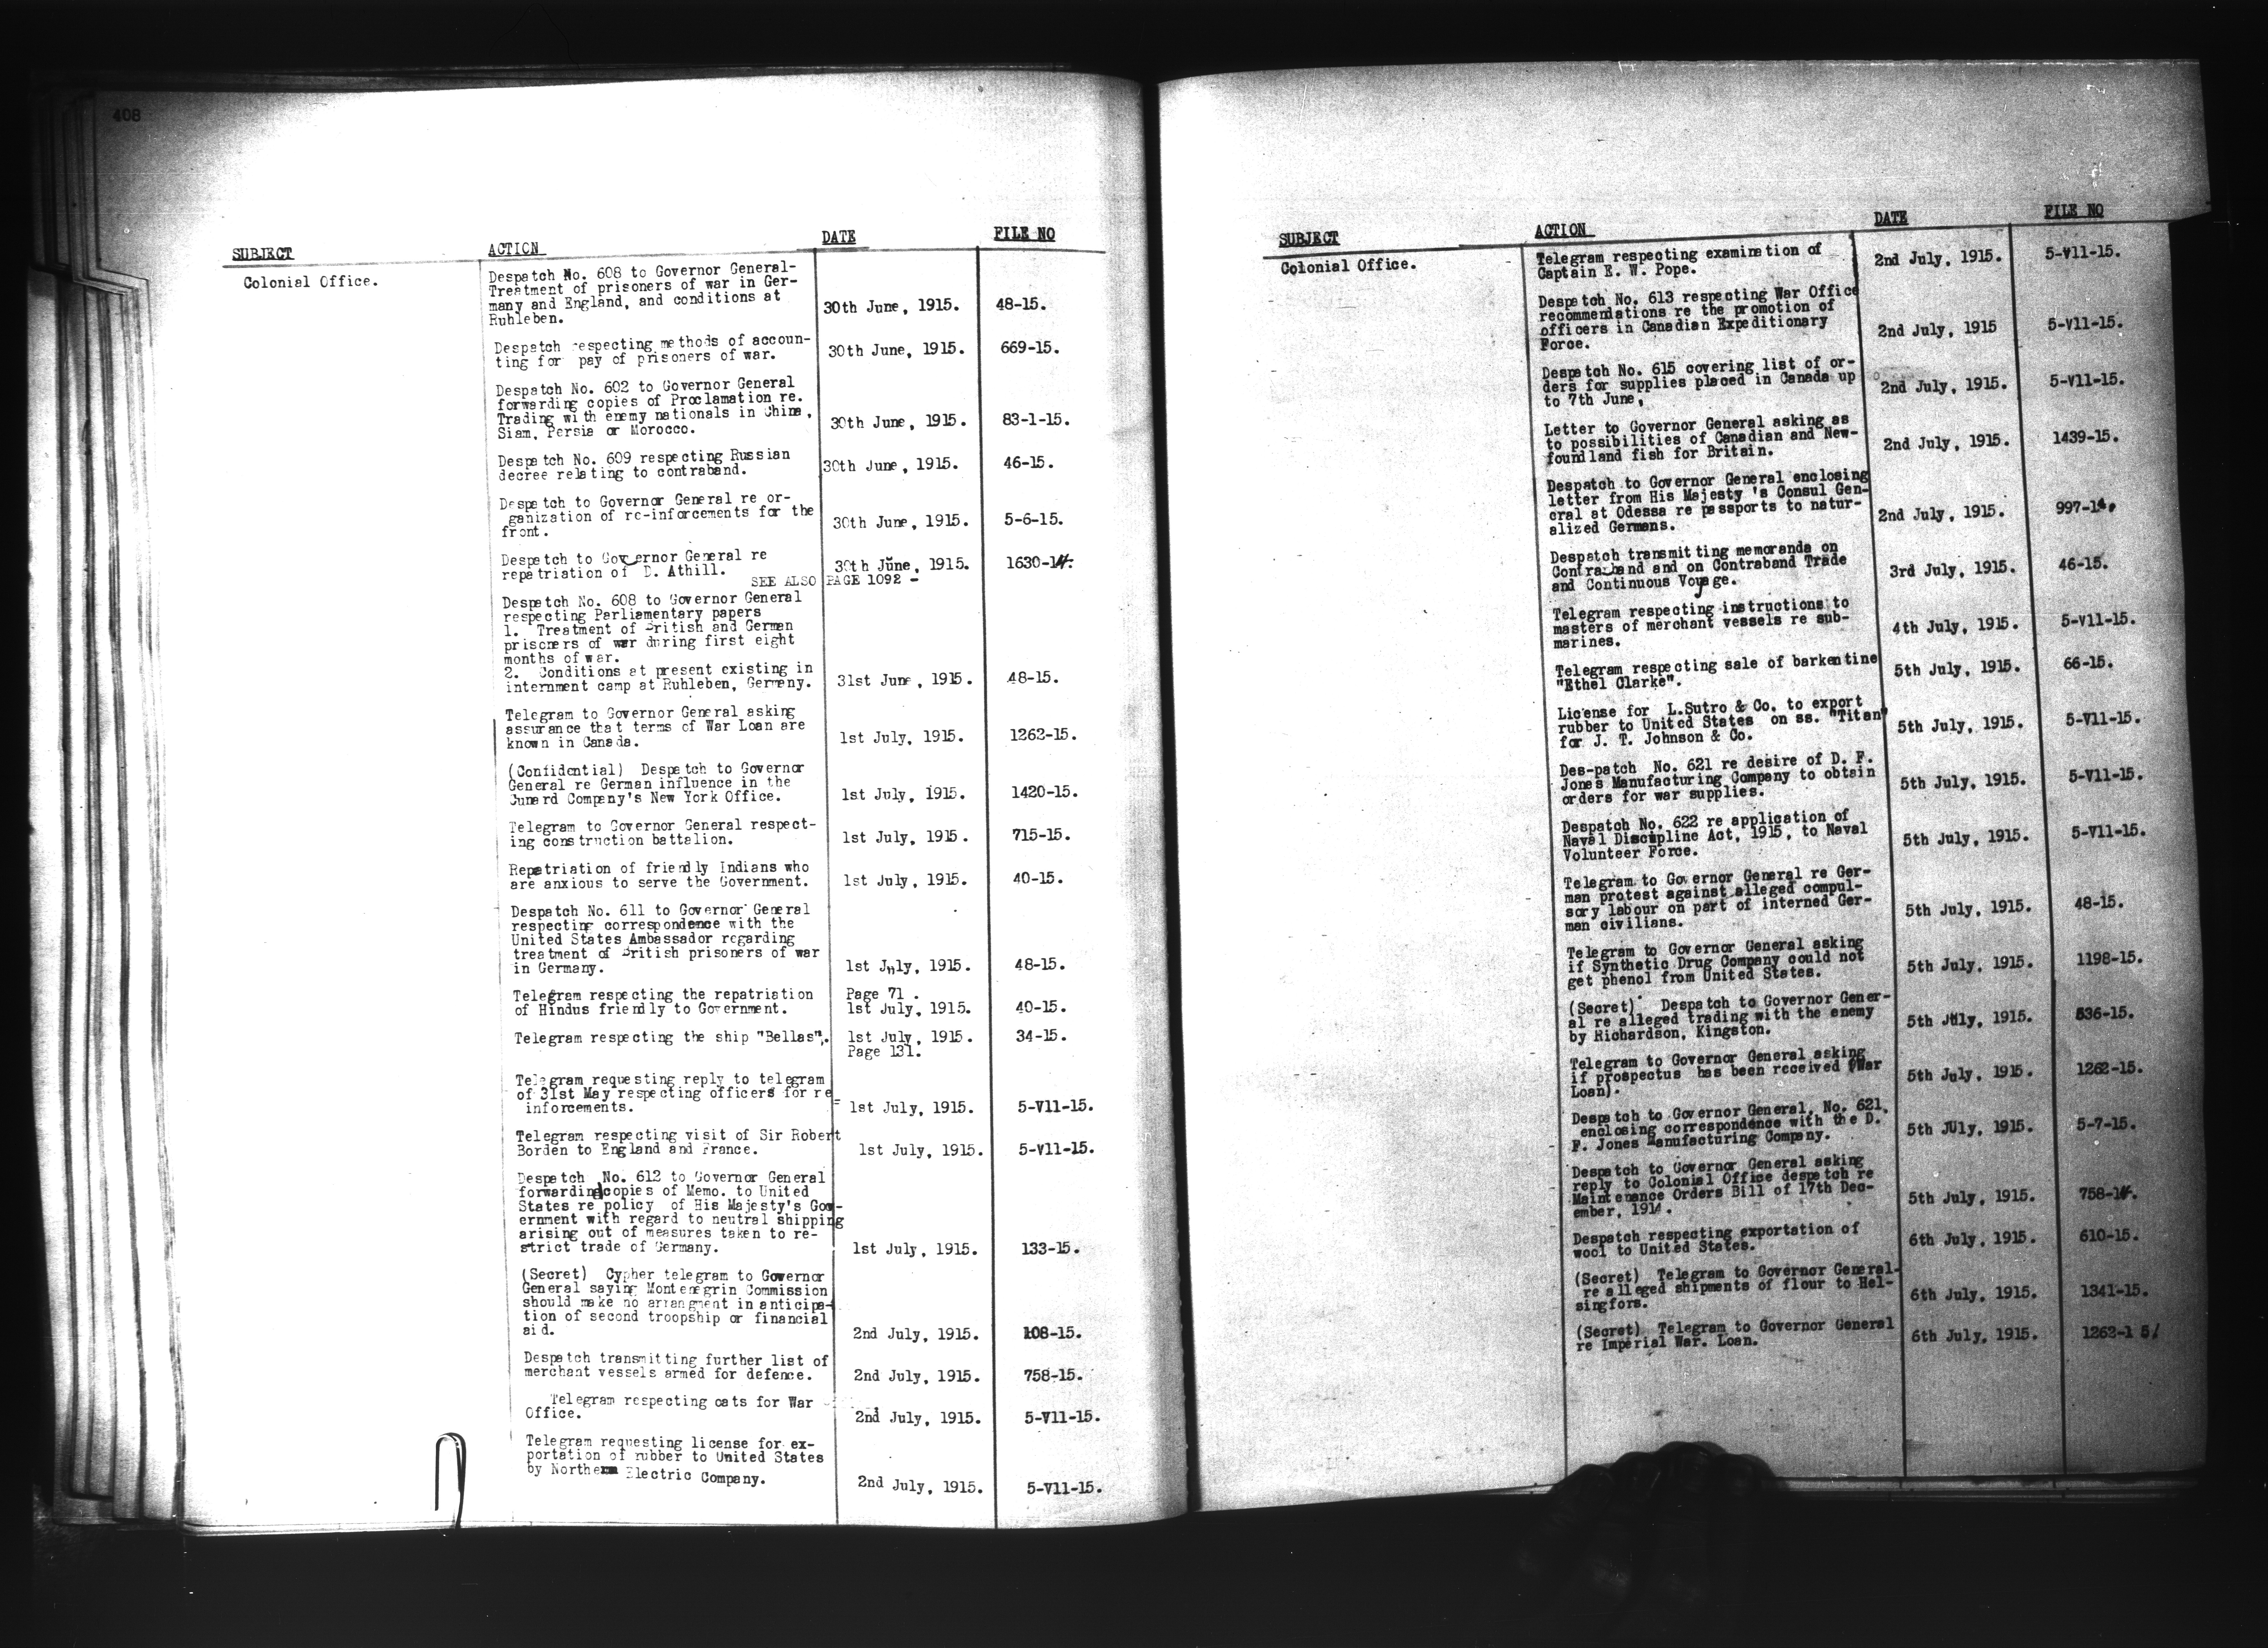 408
SUBJECT ACTION DATE FILE NO
Colonial Office.
Despatch No. 608 to Governor General-
Treatment of prisoners of war in Ger-
many and England, and conditions at 30th June, 1915. 48-15.
Ruhleben.
Despatch respecting methods of accoun-
ting for pay of prisoners of war. 30th June, 1915. 669-15.
Despatch No. 602 to Governor General
forwarding copies of Proclamation re.
Trading with enemy nationals in China,
Siam, Persia or Morocco. 30th June, 1915. 83-1-15.
Despatch No. 609 respecting Russian
decree relating to contraband. 30th June, 1915. 46-15.
Despatch to Governor General re or-
ganization of re-inforcements for the
front. 30th June, 1915. 5-6-15.
Despatch to Governor General re
repatriation of D. Athill. 30th June, 1915. 1630-14.
SEE ALSO PAGE 1092 -
Despatch No. 608 to Governor General
respecting Parliamentary papers
1. Treatment of British and German
prisoners of war during first eight
months of war.
2. Conditions at present existing in
internment camp at Ruhleben, Germany. 31st June, 1915. 48-15.
Telegram to Governor General asking
assurance that terms of War Loan are
known in Canada. 1st July, 1915. 1262-15.
(Confidential) Despatch to Governor
General re German influence in the
Cunard Company's New York Office. 1st July, 1915. 1420-15.
Telegram to Governor General respect-
ing construction battalion. 1st July, 1915. 715-15.
Repatriation of friendly Indians who
are anxious to serve the Government. 1st July, 1915. 40-15.
Despatch No. 611 to Governor General
respecting correspondence with the
United States Ambassador regarding
treatment of British prisoners of war
in Germany. 1st July, 1915. 48-15.
Telegram respecting the repatriation Page 71.
of Hindus friendly to Government. 1st July, 1915. 40-15.
Telegram respecting the ship "Bellas". 1st July, 1915. 34-15.
Page 131.
Telegram requesting reply to telegram
of 31st May respecting officers for re-
inforcements. 1st July, 1915. 5-V11-15.
Telegram respecting visit of Sir Robert
Borden to England and France. 1st July, 1915. 5-V11-15.
Despatch No. 612 to Governor General
forwarding copies of Memo. to United
States re policy of His Majesty's Gov-
ernment with regard to neutral shipping
arising out of measures taken to re-
strict trade of Germany. 1st July, 1915. 133-15.
(Secret) Cypher telegram to Governor
General saying Montenegrin Commission
should make no arrangment in anticipa-
tion of second troopship or financial
aid. 2nd July, 1915. 108-15.
Despatch transmitting further list of
merchant vessels armed for defence. 2nd July, 1915. 758-15.
Telegram respecting oats for War
Office. 2nd July, 1915. 5-V11-15.
Telegram requesting license for ex-
portation of rubber to United States
by Northern Electric Company. 2nd July, 1915. 5-V11-15.
SUBJECT ACTION DATE FILE NO
Colonial Office.
Telegram respecting examination of
Captain E. W. Pope. 2nd July, 1915. 5-V11-15.
Despatch No. 613 respecting War Office
recommendations re the promotion of
officers in Canadian Expeditionary
Force. 2nd July, 1915 5-V11-15.
Despatch No. 615 covering list of or-
ders for supplies placed in Canada up
to 7th June, 2nd July, 1915. 5-V11-15.
Letter to Governor General asking as
to possibilities of Canadian and New-
foundland fish for Britain. 2nd July, 1915. 1439-15.
Despatch to Governor General enclosing
letter from His Majesty 's Consul Gen-
eral at Odessa re passports to natur-
alized Germans. 2nd July, 1915. 997-14.
Despatch transmitting memoranda on
Contraband and on Contraband Trade
and Continuous Voyage. 3rd July, 1915. 46-15.
Telegram respecting instructions to
masters of merchant vessels re sub-
marines. 4th July, 1915. 5-V11-15.
Telegram respecting sale of barkentine
"Ethel Clarke". 5th July, 1915. 66-15.
License for L.Sutro & Co. to export
rubber to United States on ss. "Titan"
for J. T. Johnson & Co. 5th July, 1915. 5-V11-15.
Des-patch No. 621 re desire of D. F.
Jones Manufacturing Company to obtain
orders for war supplies. 5th July, 1915. 5-V11-15.
Despatch No. 622 re application of
Naval Discipline Act, 1915, to Naval
Volunteer Force. 5th July, 1915. 5-V11-15.
Telegram to Governor General re Ger-
man protest against alleged compul-
sory labour on part of interned Ger-
man civilians. 5th July, 1915. 48-15.
Telegram to Governor General asking
if Synthetic Drug Company could not
get phenol from United States. 5th July, 1915. 1198-15.
(Secret) Despatch to Governor Gener-
al re alleged trading with the enemy
by Richardson, Kingston. 5th July, 1915. 536-15.
Telegram to Governor General asking
if prospectus has been received (War
Loan). 5th July, 1915. 1262-15.
Despatch to Governor General, No. 621,
enclosing correspondence with the D.
F. Jones Manufacturing Company. 5th July, 1915. 5-7-15.
Despatch to Governor General asking
reply to Colonial Office despatch re
Maintenance Orders Bill of 17th Dec-
ember, 1914. 5th July, 1915. 758-14.
Despatch respecting exportation of
wool to United States. 6th July, 1915. 610-15.
(Secret) Telegram to Governor General-
re alleged shipments of flour to Hel-
singfors. 6th July, 1915. 1341-15.
(Secret) Telegram to Governor General
re Imperial War. Loan. 6th July, 1915. 1262-1 5/